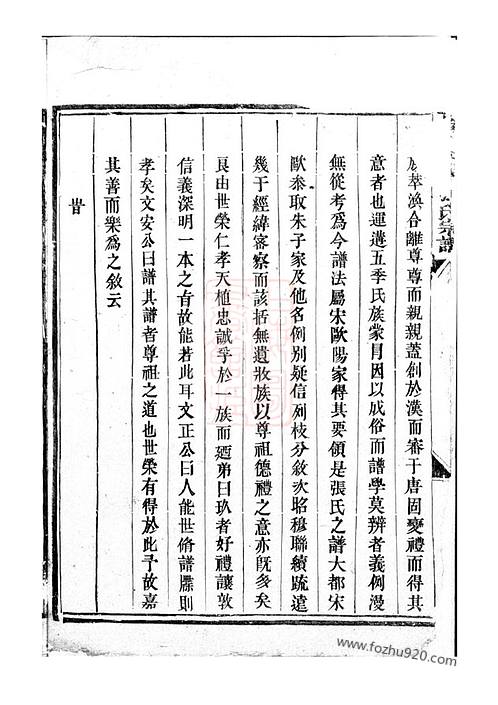 族萃渙合離尊尊而親親蓋創於漢而審于唐固變禮而得其
意者也運遘五季氏族蒙冒因以成俗而譜學莫辨者義例漫
無從考爲今譜法屬宋歐陽家得其要領是張氏之譜大都宋
歐叅取朱子家及他名例别疑信列枝分敘次昭穆聯續䟽遠
幾于經緯宻察而該括無遺妝族以尊祖德禮之意亦旣多矣
良由世榮仁孝天植忠誠孚於一族而廼弟曰玖者好禮讓敦
信義深明一本之㫖故能若此耳文正公曰人能世脩譜牒則
孝矣文安公曰譜其譜者尊祖之道也世榮有得於此予故嘉
其善而樂爲之敘云
旹
氏宗譜
www.fozhu920.com